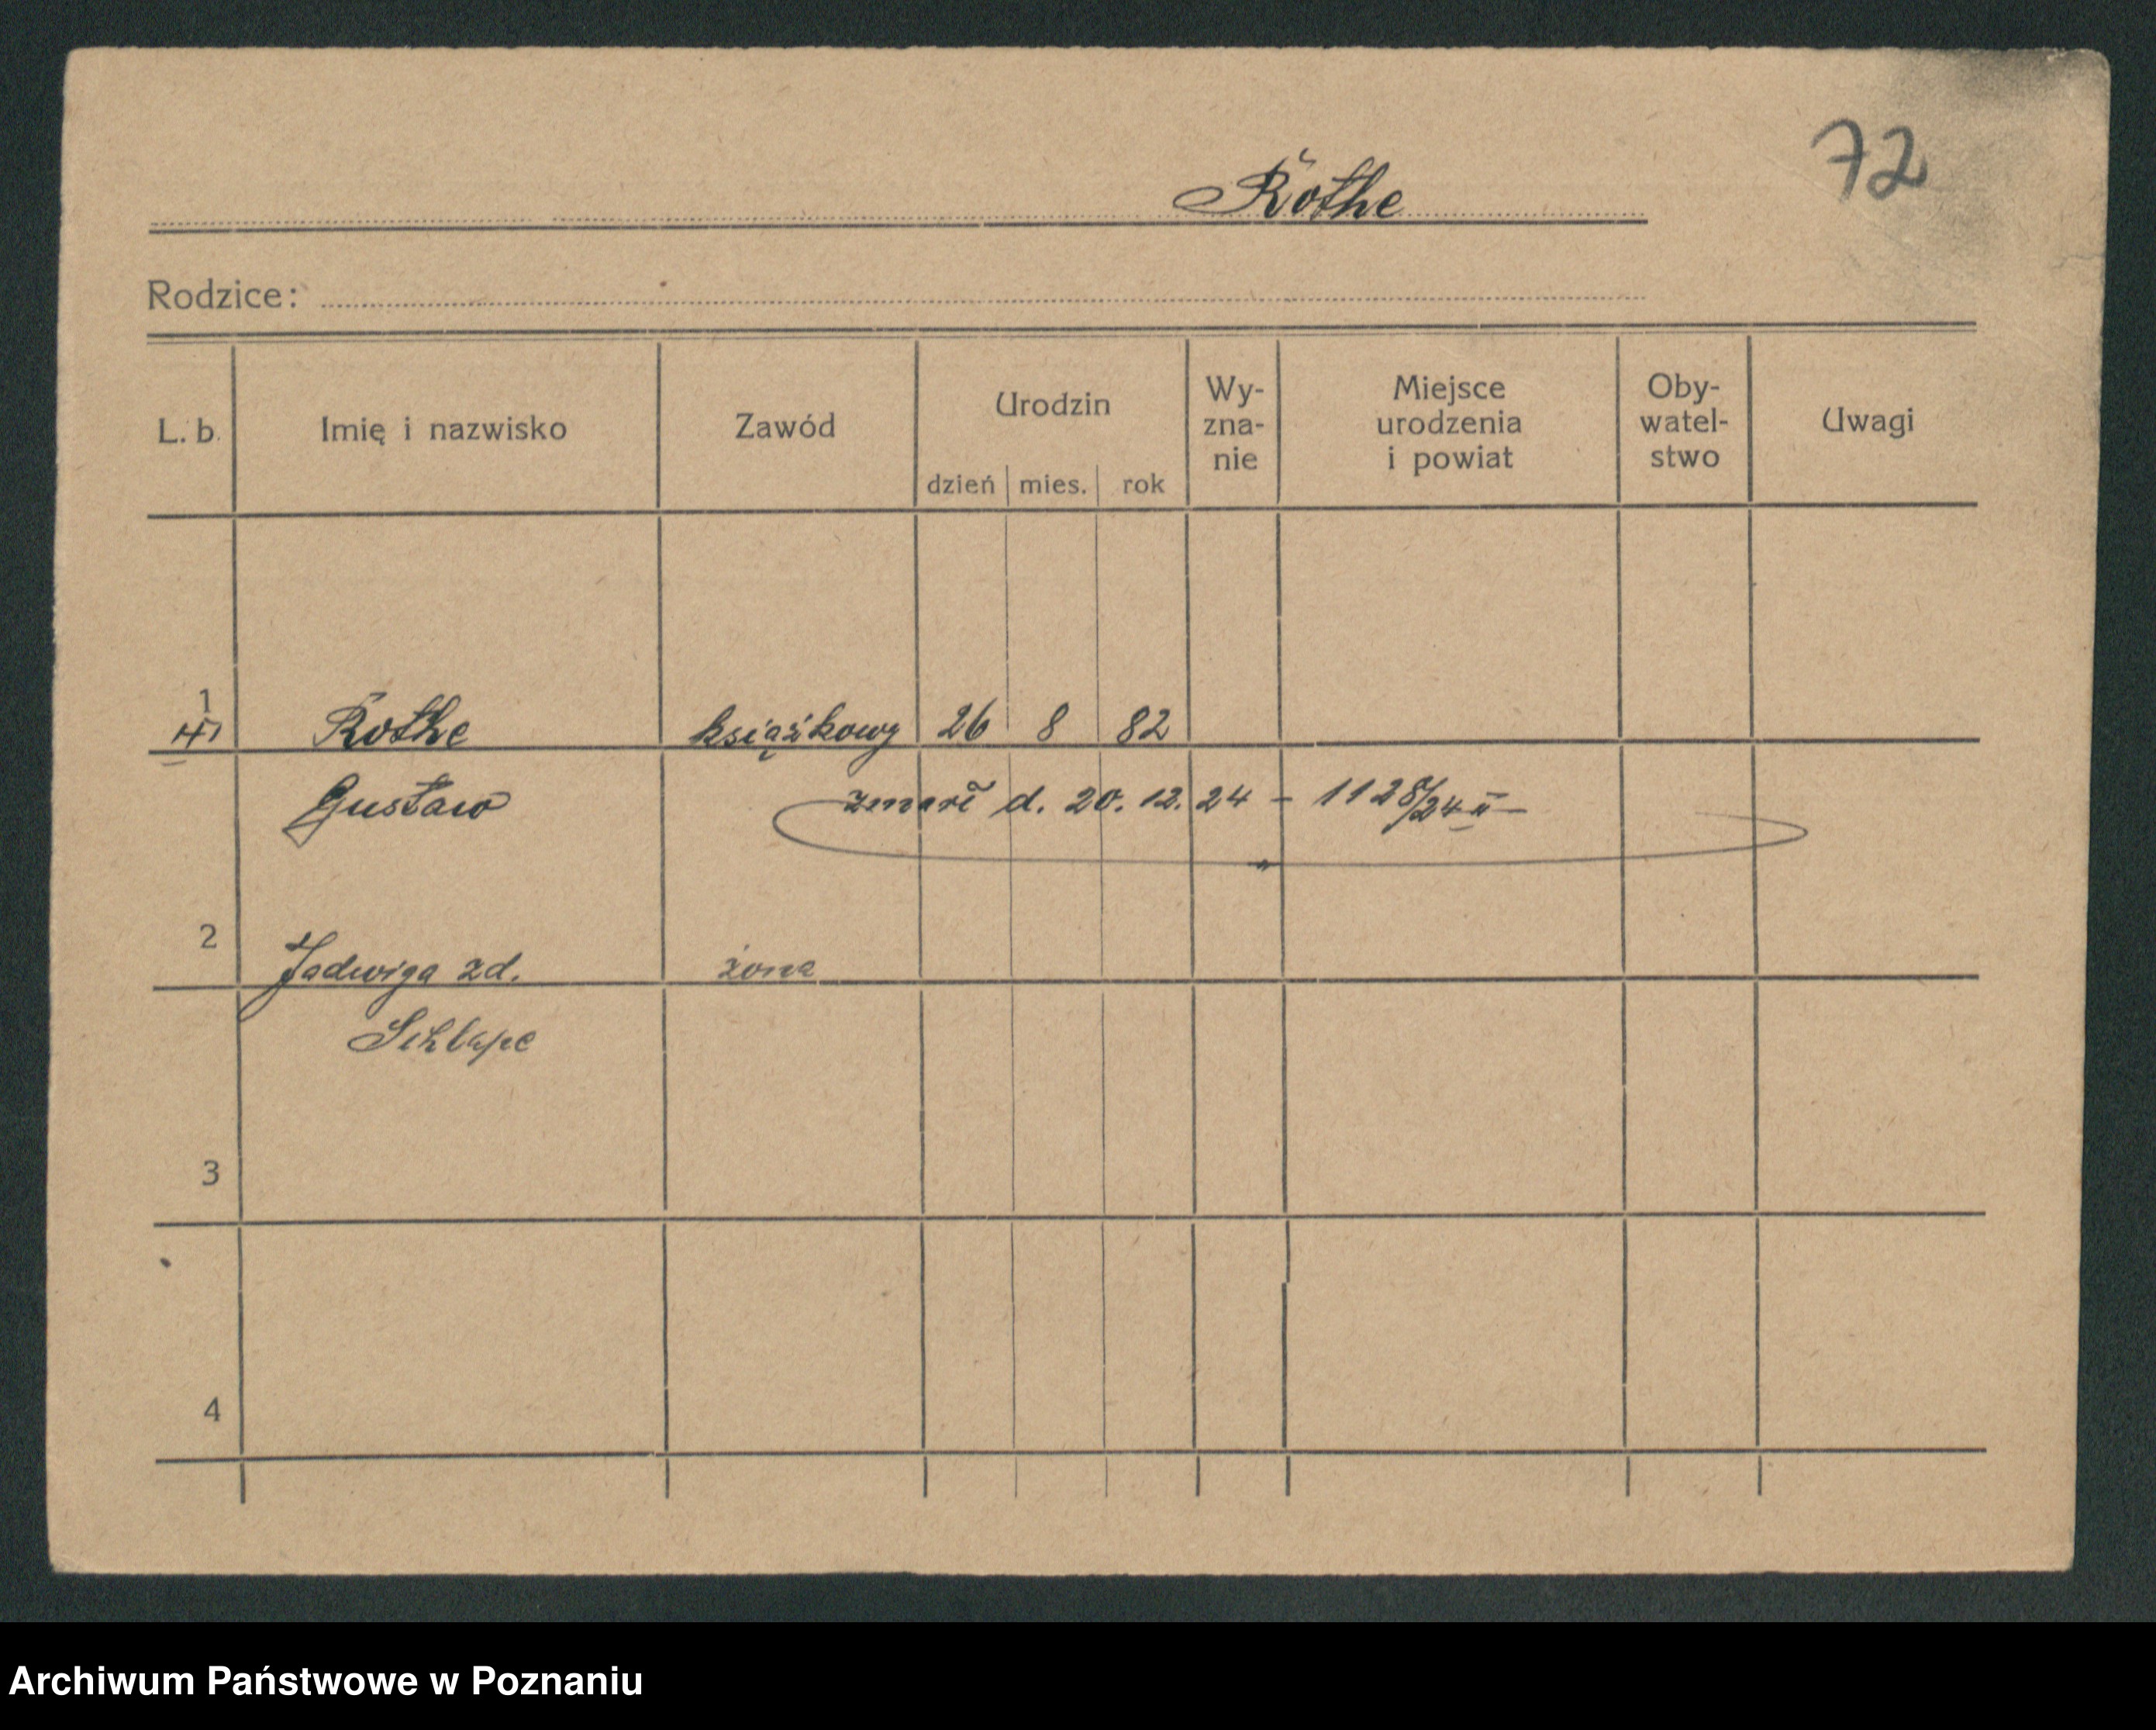 72
Rothe
Rodzice:
L. b. Imię i nazwisko Zawód Urodzin dzień mies. rok Wy-zna-nie Miejsce urodzenia i powiat Oby-watel-stwo Uwagi
1 Rothe książkowy 26 8 82
Gustaw zmarł d. 20. 12. 24 – 1128/24 II
2 Jadwiga zd. żona
3
4
Archiwum Państwowe w Poznaniu